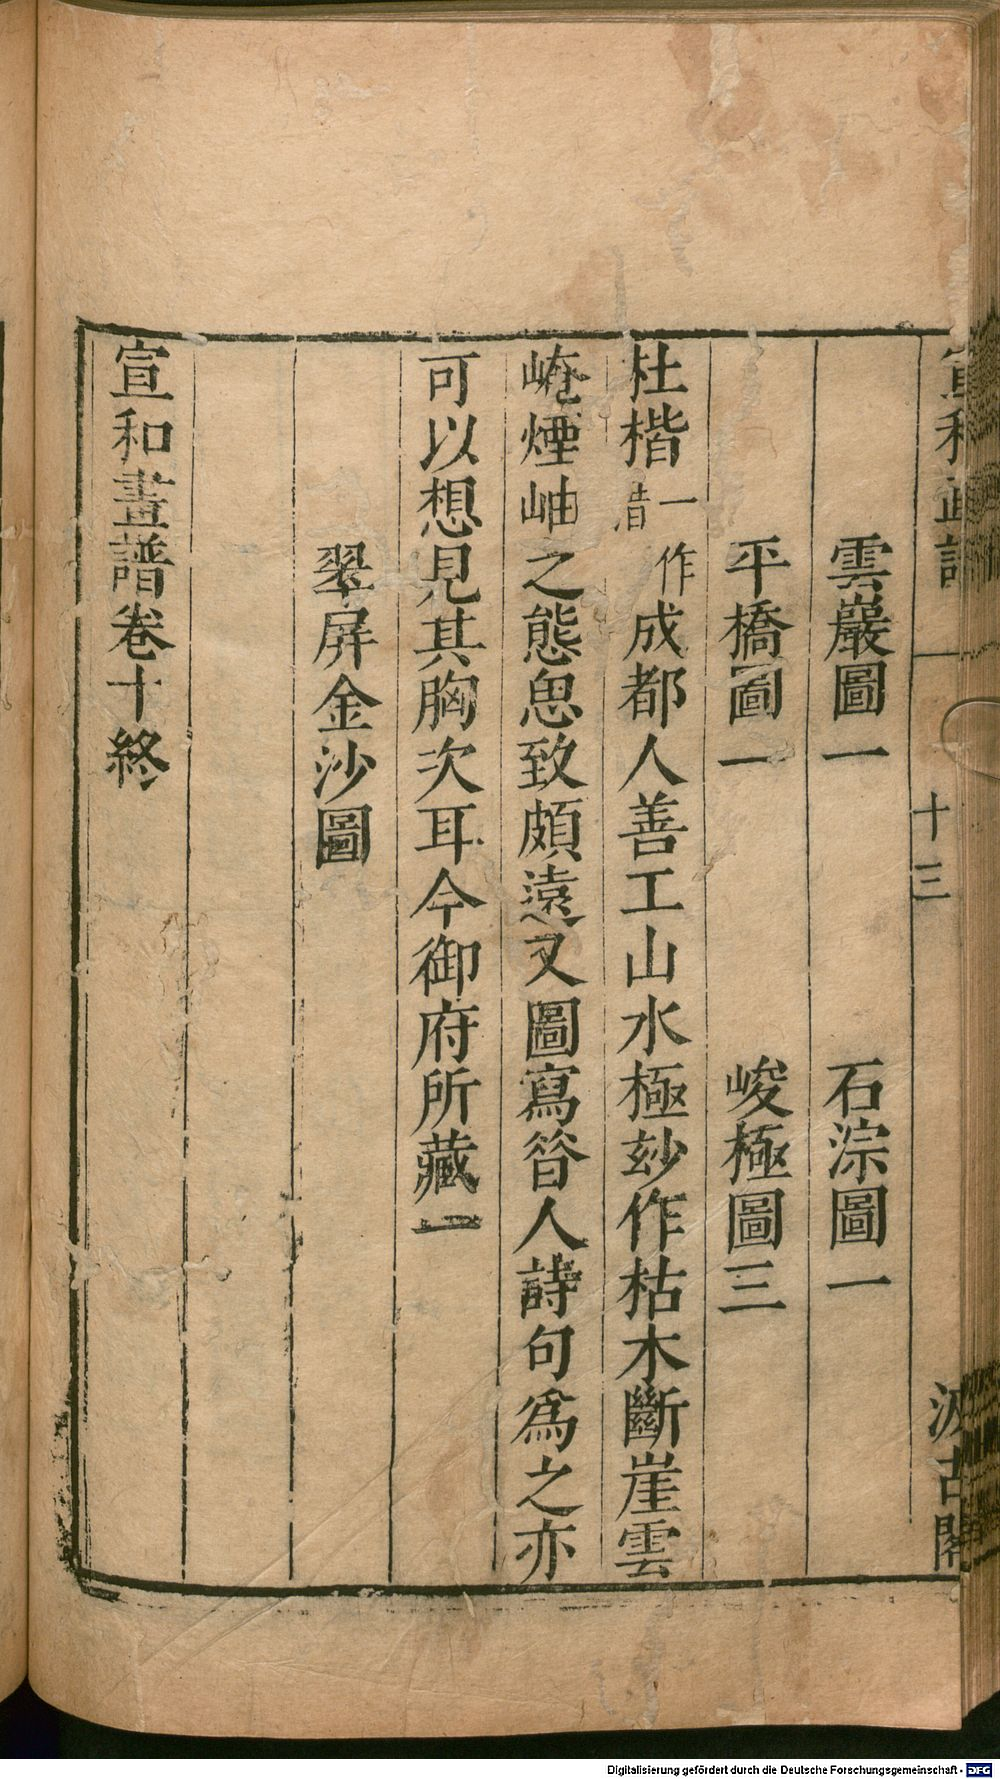 宣和畫譜　十三　汲古閣
雲巖圖一　石淙圖一
平橋圖一　峻極圖三
杜楷一作㫺成都人善工山水極玅作枯木斷崖雲
崦煙岫之態思致頗遠又圖寫昝人詩句爲之亦
可以想見其胸次耳今御府所藏一
翠屏金沙圖
宣和畫譜卷十終
Digitalisierung gefördert durch die Deutsche Forschungsgemeinschaft - DFG